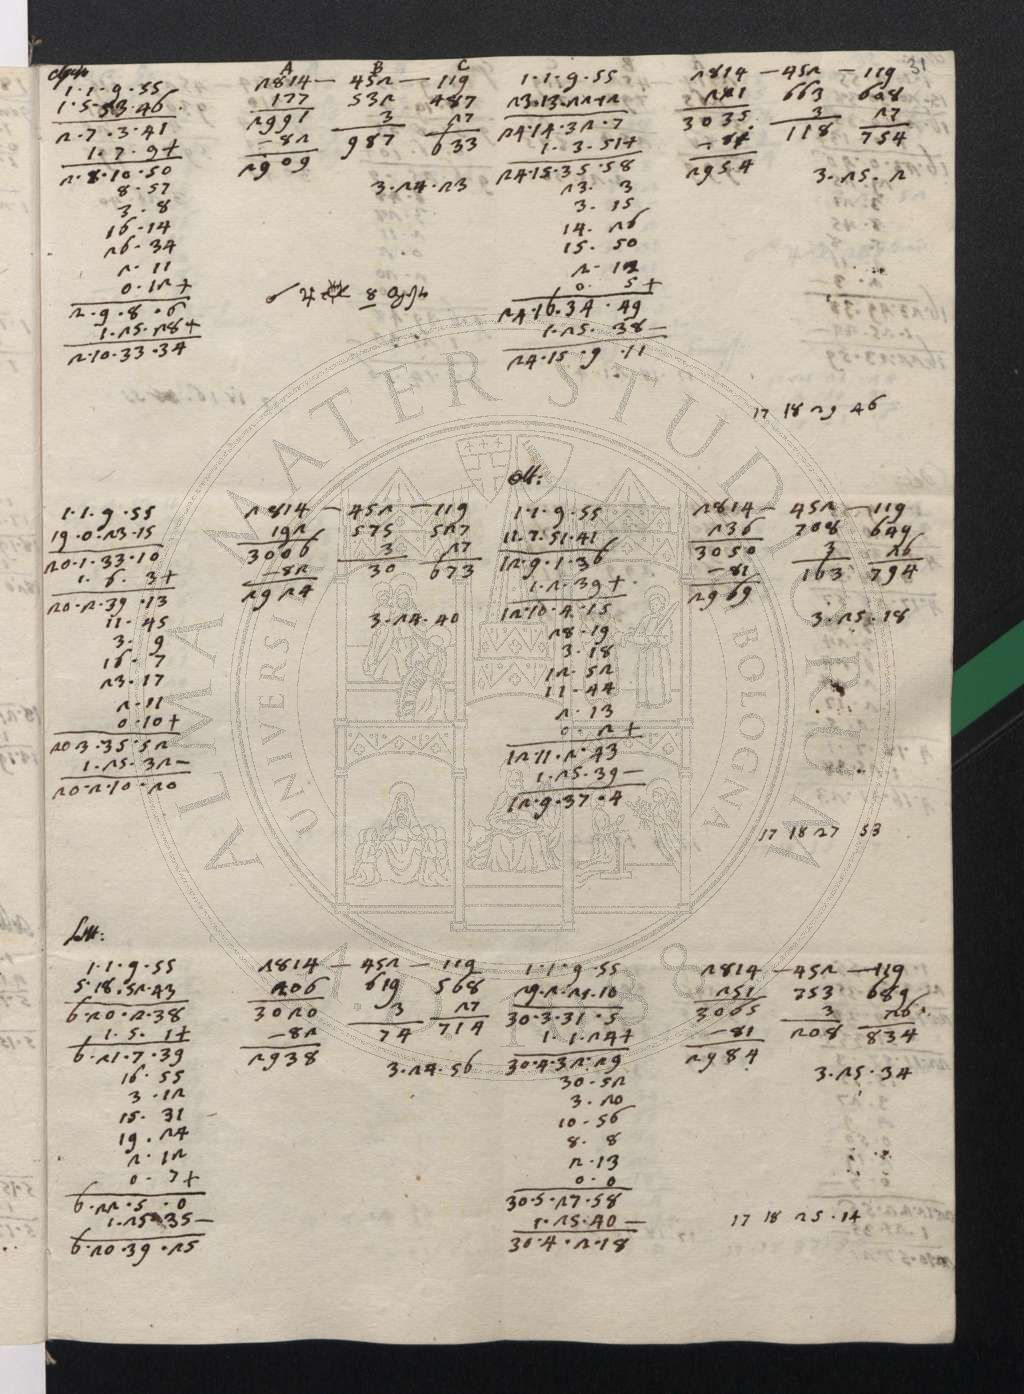 31
1·1·9·55
1·5·53·46
2·7·3·41
1·7·9+
2·8·10·50
8·57
3·8
16·14
26·34
2·11
0·12+
2·9·8·6
1·25·28+
2·10·33·34
A B C
2814 — 452 — 119
177 532 487
2991 3 27
—82 987 633
2909
3·24·23
1·1·9·55
23·13·22·12
24·14·32·7
1·3·51+
24·15·35·58
23·3
3·15
14·26
15·50
2·12
0·5+
24·16·34·49
1·25·38—
24·15·9·11
2814 — 452 — 119
221 663 608
3035 3 27
—81 118 754
2954
3·25·2
17 18 29 46
1·1·9·55
19·0·23·15
20·1·33·10
1·6·3+
20·2·39·13
11·45
3·9
16·7
23·17
2·11
0·10+
20·3·35·52
1·25·32—
20·2·10·20
2814 — 452 — 119
192 575 527
3006 3 27
—82 30 673
2924
3·24·40
1·1·9·55
11·7·51·41
12·9·1·36
1·2·39+
12·10·4·15
28·19
3·18
12·52
11·44
2·13
0·2+
12·11·2·43
1·25·39—
12·9·37·4
2814 — 452 — 119
236 708 649
3050 3 26
—81 163 794
2969
3·25·18
17 18 27 53
1·1·9·55
5·18·52·43
6·20·2·38
1·5·1+
6·21·7·39
16·55
3·12
15·31
19·24
2·12
0·7+
6·22·5·0
1·25·35—
6·20·39·25
2814 — 452 — 119
206 619 568
3020 3 27
—82 74 714
2938
3·24·56
1·1·9·55
29·2·21·10
30·3·31·5
1·1·24+
30·4·32·29
30·52
3·20
10·56
8·8
2·13
0·0
30·5·27·58
1·25·40—
30·4·2·18
2814 — 452 — 119
251 753 689
3065 3 26
—81 208 834
2984
3·25·34
17 18 25·14
ALMA MATER STUDIORUM
UNIVERSI BOLOGNA